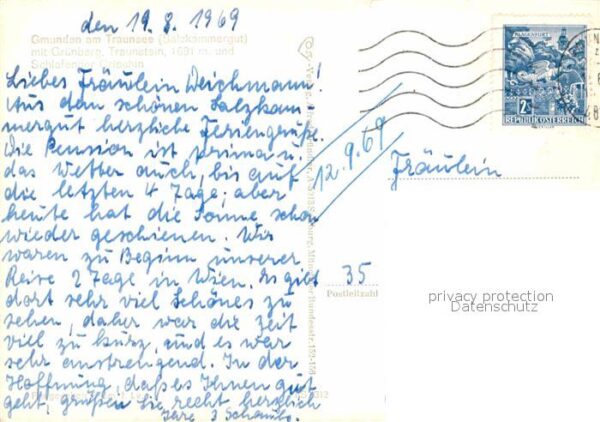 den 19.8.1969
Gmunden am Traunsee (Salzkammergut)
mit Grünberg, Traunstein, 1691 m, und
Schlafender Griechin
Liebes Fräulein Weichmann!
Aus dem schönen Salzkam
mergut herzliche Feriengrüße.
Die Pension ist prima u.
das Wetter auch, bis auf
die letzten 4 Tage; aber
heute hat die Sonne schon
wieder geschienen. Wir
waren zu Beginn unserer
Reise 2 Tage in Wien. Es gibt
dort sehr viel Schönes zu
sehen, daher war die Zeit
viel zu kurz, und es war
sehr anstrengend. In der
Hoffnung, daß es Ihnen gut
geht, grüßen Sie recht herzlich
Ihre 3
12.9.69
KLAGENFURT
2S
REPUBLIK ÖSTERREICH
Fräulein
35
Postleitzahl
privacy protection
Datenschutz